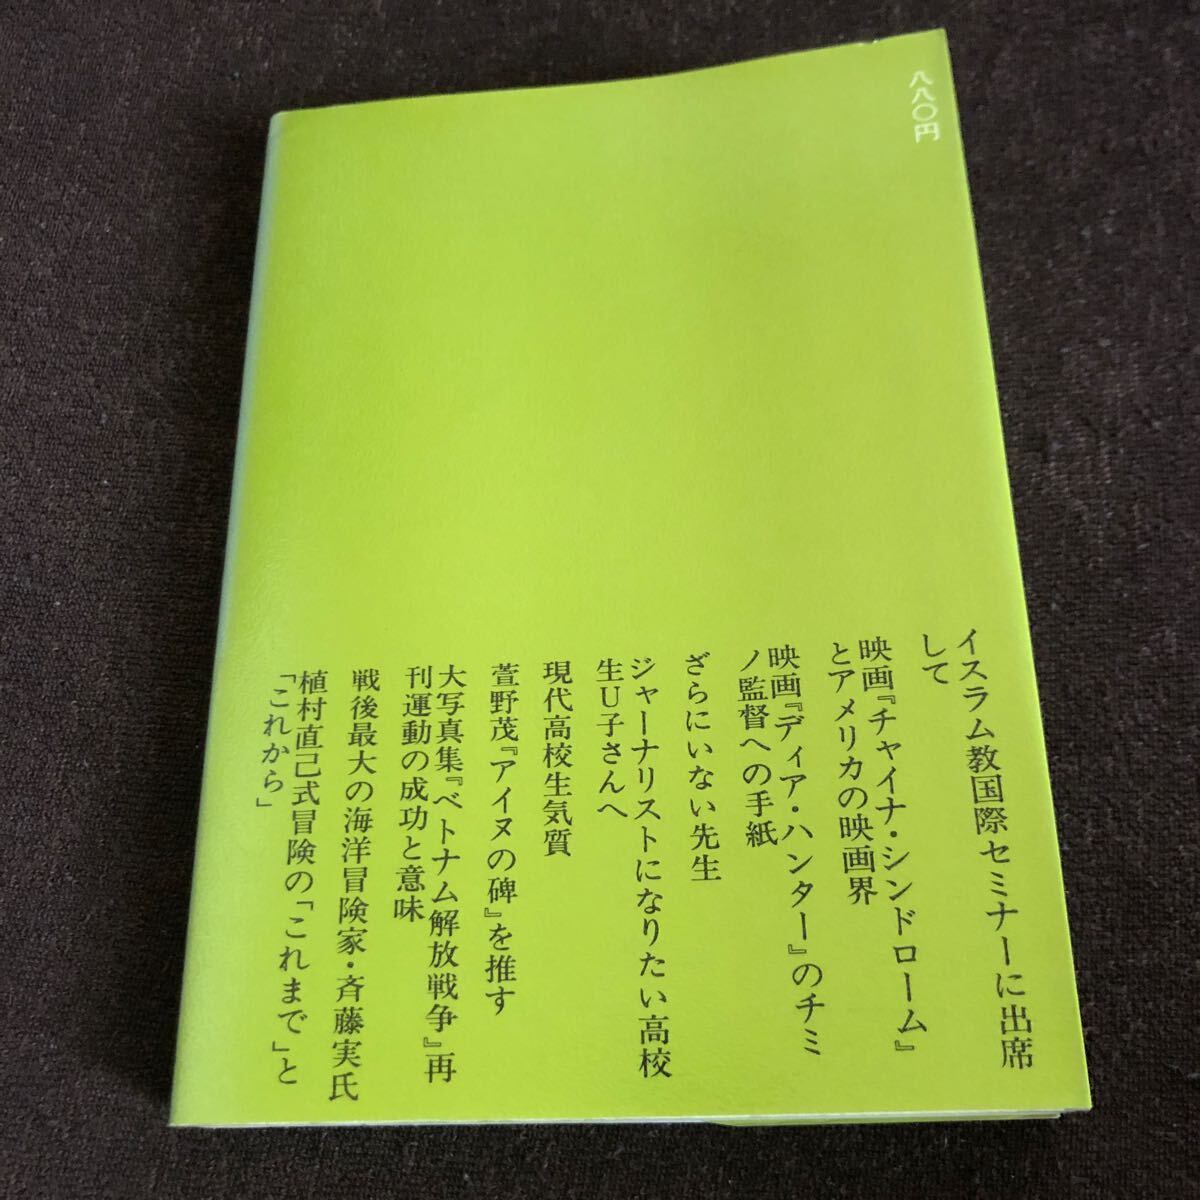 八八〇円
イスラム教国際セミナーに出席
して
映画『チャイナ・シンドローム』
とアメリカの映画界
映画『ディア・ハンター』のチミ
ノ監督への手紙
ざらにいない先生
ジャーナリストになりたい高校
生U子さんへ
現代高校生気質
萱野茂『アイヌの碑』を推す
大写真集『ベトナム解放戦争』再
刊運動の成功と意味
戦後最大の海洋冒険家・斉藤実氏
植村直己式冒険の「これまで」と
「これから」